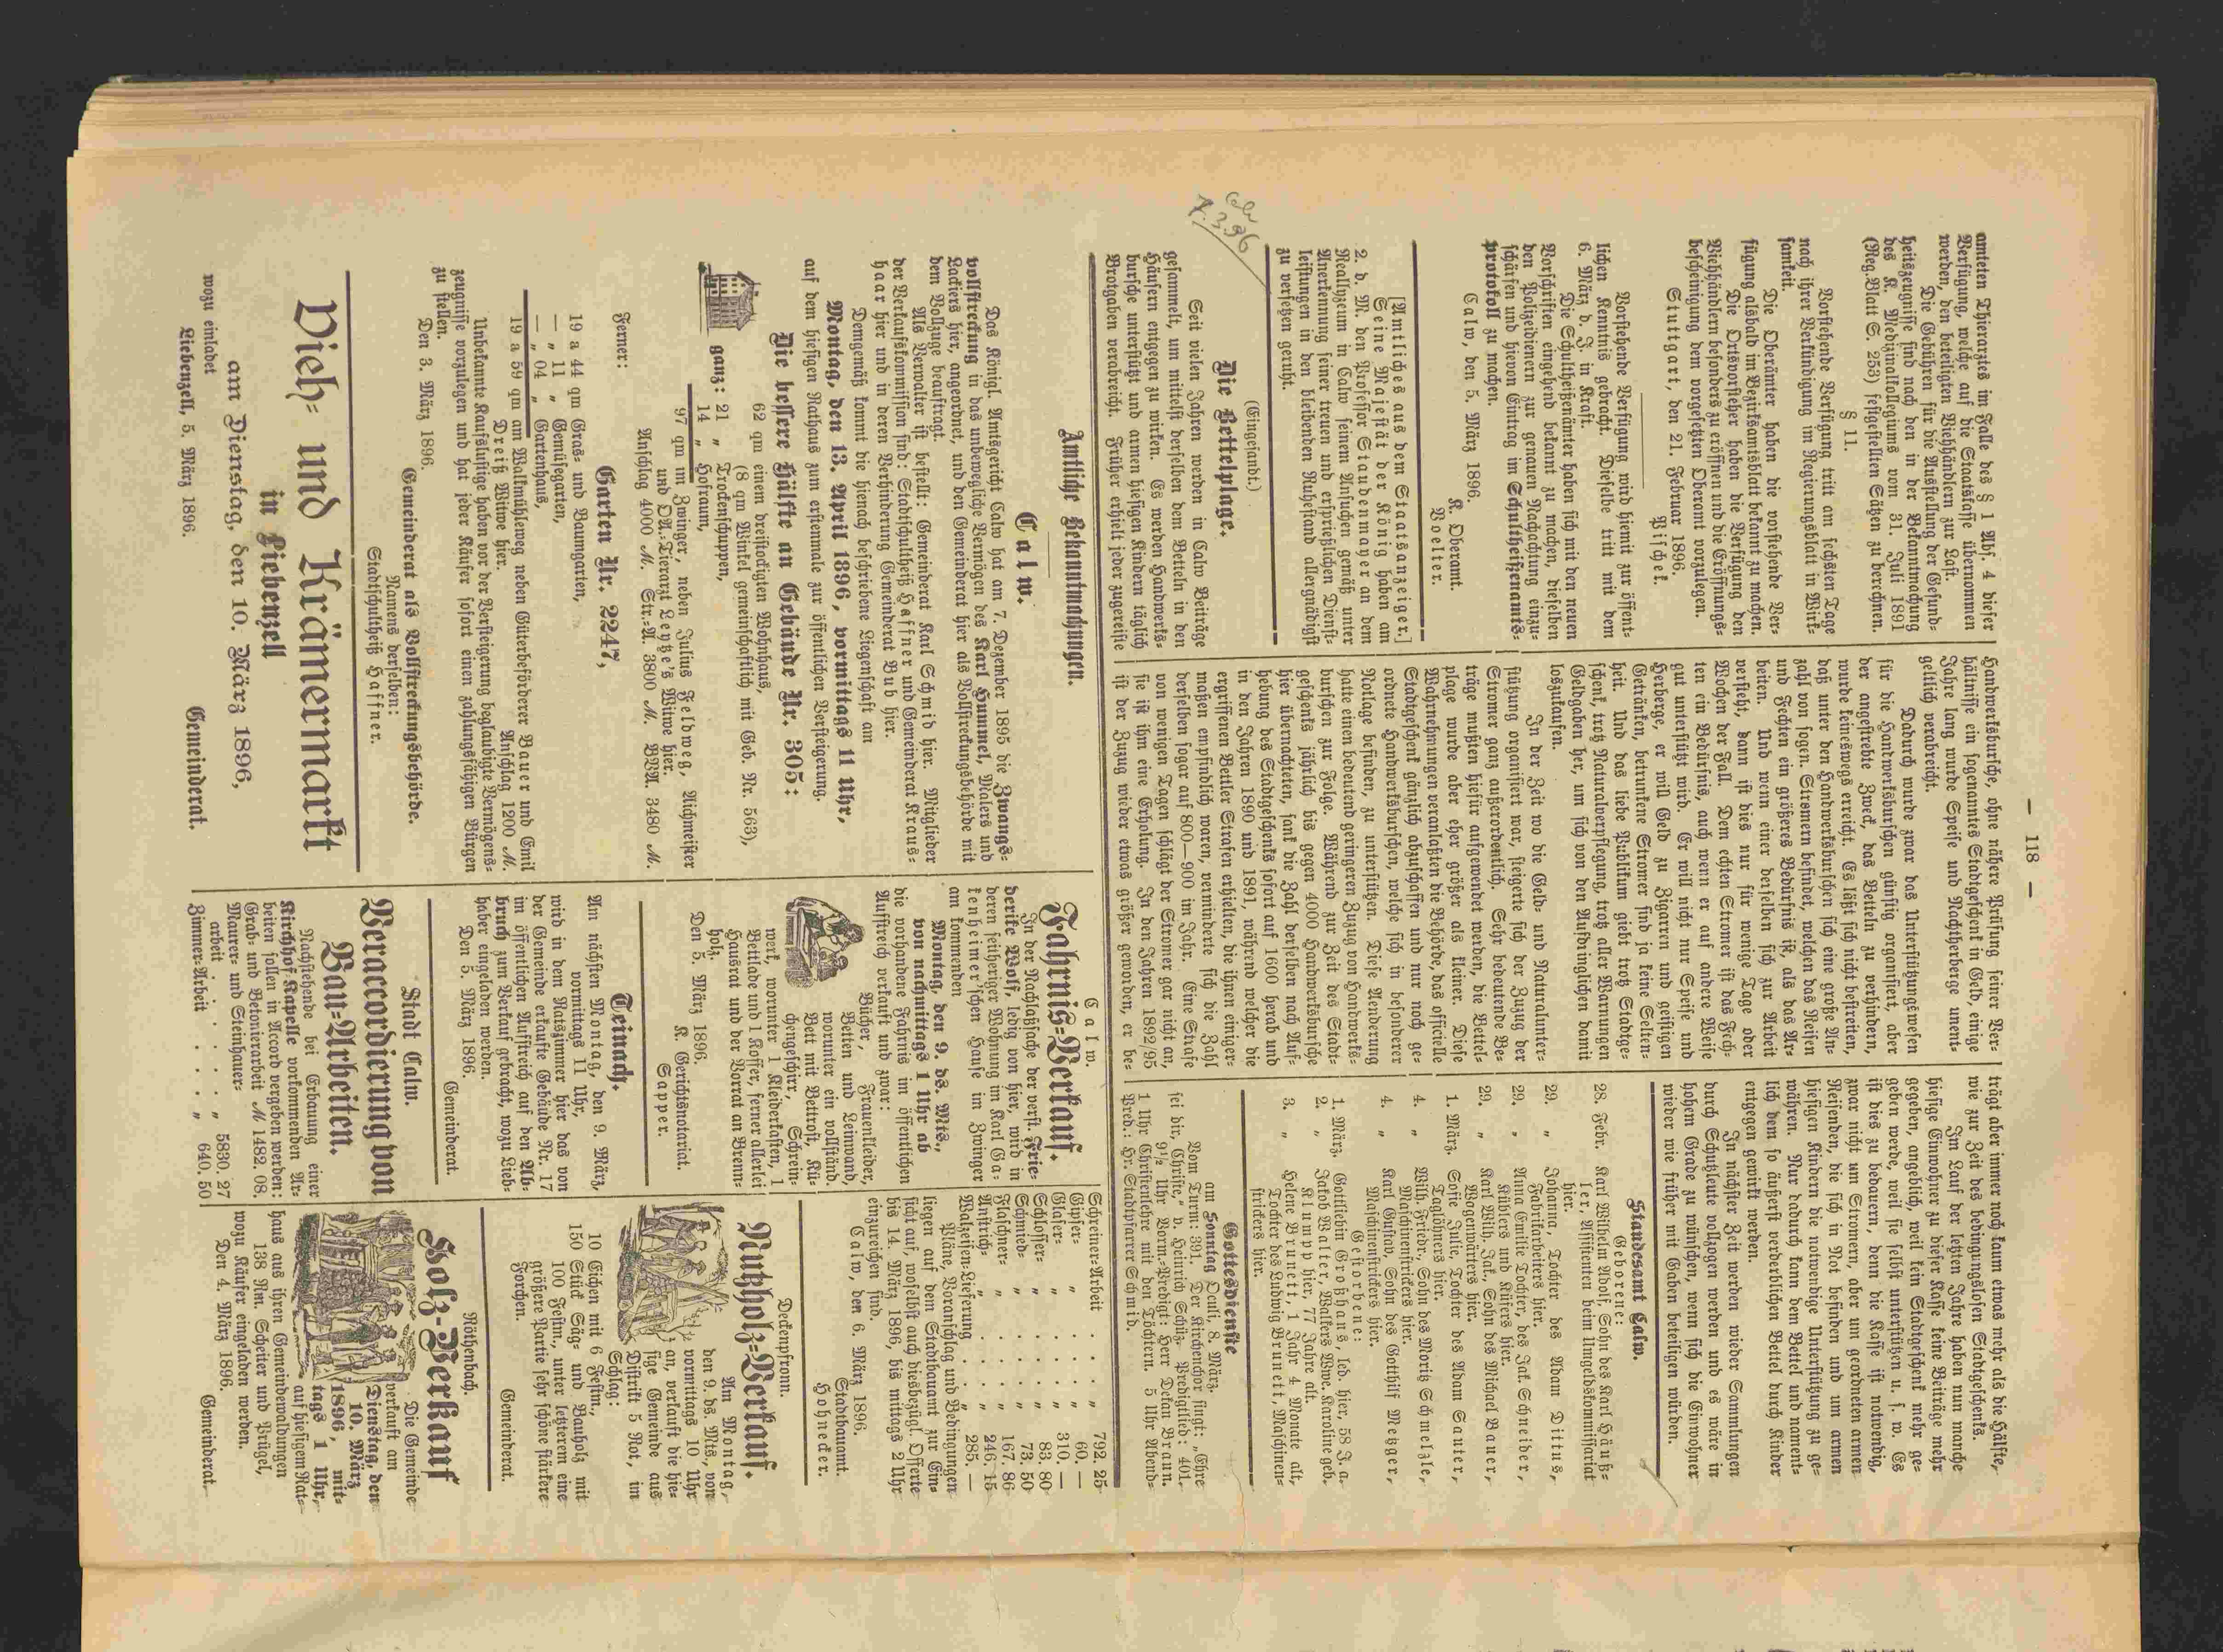 — 118 —
amteten Thierarztes im Falle des § 1 Abs. 4 dieser
Verfügung, welche auf die Staatskasse übernommen
werden, den beteiligten Viehhändlern zur Last.
Die Gebühren für die Ausstellung der Gesund-
heitszeugnisse sind nach den in der Bekanntmachung
des K. Medizinalkollegiums vom 31. Juli 1891
(Reg.Blatt S. 253) festgestellten Sätzen zu berechnen.
§ 11.
Vorstehende Verfügung tritt am sechsten Tage
nach ihrer Verkündigung im Regierungsblatt in Wirk-
samkeit.
Die Oberämter haben die vorstehende Ver-
fügung alsbald im Bezirksamtsblatt bekannt zu machen.
Die Ortsvorsteher haben die Verfügung den
Viehhändlern besonders zu eröffnen und die Eröffnungs-
bescheinigung dem vorgesetzten Oberamt vorzulegen.
Stuttgart, den 21. Februar 1896.
Pischek.
Vorstehende Verfügung wird hiemit zur öffent-
lichen Kenntnis gebracht. Dieselbe tritt mit dem
6. März d. J. in Kraft.
Die Schultheißenämter haben sich mit den neuen
Vorschriften eingehend bekannt zu machen, dieselben
den Polizeidienern zur genauen Nachachtung einzu-
schärfen und hievon Eintrag im Schultheißenamts-
protokoll zu machen.
Calw, den 5. März 1896.
K. Oberamt.
Voelter.
[Amtliches aus dem Staatsanzeiger.]
Seine Majestät der König haben am
2. d. M. den Professor Staudenmayer an dem
Reallyzeum in Calw seinem Ansuchen gemäß unter
Anerkennung seiner treuen und ersprießlichen Dienst-
leistungen in den bleibenden Ruhestand allergnädigst
zu versetzen geruht.
7.3.96
(Eingesandt.)
Die Bettelplage.
Seit vielen Jaren werden in Calw Beiträge
gesammelt, um mittelst derselben dem Betteln in den
Häusern entgegen zu wirken. Es werden Handwerks-
bursche unterstützt und armen hiesigen Kindern täglich
Brotgaben verabreicht. Früher erhielt jeder zugereiste
Handwerksbursche, ohne nähere Prüfung seiner Ver-
hältnisse ein sogenanntes Stadtgeschenk in Geld, einige
Jahre lang wurde Speise und Nachtherberge unent-
geltlich verabreicht.
Dadurch wurde zwar das Unterstützungswesen
für die Handwerksburschen günstig organisiert, aber
der angestrebte Zweck, das Betteln zu verhindern,
wurde keineswegs erreicht. Es läßt sich nicht bestreiten,
daß unter den Handwerksburschen sich eine große An-
zahl von sogen. Stromern befindet, welchen das Reisen
und Fechten ein größeres Bedürfnis ist, als das Ar-
beiten. Und wenn einer derselben sich zur Arbeit
versteht, dann ist dies nur für wenige Tage oder
Wochen der Fall. Dem echten Stromer ist das Fech-
ten ein Bedürfnis, auch wenn er auf andere Weise
gut unterstützt wird. Er will nicht nur Speise und
Herberge, er will Geld zu Zigarren und geistigen
Getränken, betrunkene Stromer sind ja keine Selten-
heit. Und das liebe Publikum giebt trotz Stadtge-
schenk, trotz Naturalverpflegung, trotz aller Warnungen
Geldgaben her, um sich von den Aufdringlichen damit
loszukaufen.
In der Zeit wo die Geld- und Naturalunter-
stützung organisiert war, steigerte sich der Zuzug der
Stromer ganz außerordentlich. Sehr bedeutende Be-
träge mußten hiefür aufgewendet werden, die Bettel-
plage wurde aber eher größer als kleiner. Diese
Wahrnehmungen veranlaßten die Behörde, das officielle
Stadtgeschenk gänzlich abzuschaffen und nur noch ge-
ordnete Handwerksburschen, welche sich in besonderer
Notlage befinden, zu unterstützen. Diese Aenderung
hatte einen bedeutend geringeren Zuzug von Handwerks-
burschen zur Folge. Während zur Zeit des Stadt-
geschenks jährlich bis gegen 4000 Handwerksbursche
hier übernachteten, sank die Zahl derselben nach Auf-
hebung des Stadtgeschenks sofort auf 1600 herab und
in den Jahren 1890 und 1891, während welcher die
ergriffenen Bettler Strafen erhielten, die ihnen einiger-
maßen empfindlich waren, verminderte sich die Zahl
derselben sogar auf 800—900 im Jahr. Eine Strafe
von wenigen Tagen schlägt der Stromer gar nicht an,
sie ist ihm eine Erholung. In den Jahren 1892/95
ist der Zuzug wieder etwas größer geworden, er be-
trägt aber immer noch kaum etwas mehr als die Hälfte,
wie zur Zeit des bedingungslosen Stadtgeschenks.
Im Lauf der letzten Jahre haben nun manche
hiesige Einwohner zu dieser Kasse keine Beiträge mehr
gegeben, angeblich, weil kein Stadtgeschenk mehr ge-
geben werde, weil sie selbst unterstützen u. s. w. Es
ist dies zu bedauern, denn die Kasse ist notwendig,
zwar nicht um Stromern, aber um geordneten armen
Reisenden, die sich in Not befinden und um armen
hiesigen Kindern die notwendige Unterstützung zu ge-
währen. Nur dadurch kann dem Bettel und nament-
lich dem so äußerst verderblichen Bettel durch Kinder
entgegen gewirkt werden.
In nächster Zeit werden wieder Sammlungen
durch Schutzleute vollzogen werden und es wäre in
hohem Grade zu wünschen, wenn sich die Einwohner
wieder wie früher mit Gaben beteiligen würden.
Standesamt Calw.
Geborene:
28. Febr. Karl Wilhelm Adolf, Sohn des Karl Häuß-
ler, Assistenten beim Umgeldskommissariat
hier.
29. „ Johanna, Tochter des Adam Dittus,
Fabrikarbeiters hier.
29. „ Anna Emilie Tochter, des Jak. Schneider,
Küblers und Küfers hier.
29. „ Karl Wilh. Jak., Sohn des Michael Bauer,
Wagenwärters hier.
1. März. Sofie Julie, Tochter des Adam Sauter,
Taglöhners hier.
4. „ Wilh. Friedr., Sohn des Moritz Schmelzle,
Maschinenstrickers hier.
4. „ Karl Gustav, Sohn des Gotthilf Metzger,
Maschinenstrickers hier.
Gestorbene:
1. März. Gottliebin Großhans, led. hier, 58 J. a.
2. „ Jakob Walter, Walkers Wwe. Karoline geb.
Klumpp hier, 77 Jahre alt.
3. „ Helene Brunett, 1 Jahr 4 Monate alt,
Tochter des Ludwig Brunett, Maschinen-
strickers hier.
Gottesdienste
am Sonntag Oculi, 8. März.
Vom Turm: 391. Der Kirchenchor singt: „Ehre
sei dir, Christe,“ v. Heinrich Schütz. Predigtlied: 401.
9½ Uhr Vorm.-Predigt: Herr Dekan Braun.
1 Uhr Christenlehre mit den Töchtern. 5 Uhr Abend-
Pred.: Hr. Stadtpfarrer Schmid.
Amtliche Bekanntmachungen.
Calw.
Das Königl. Amtsgericht Calw hat am 7. Dezember 1895 die Zwangs-
vollstreckung in das unbewegliche Vermögen des Karl Hummel, Malers und
Lackiers hier, angeordnet, und den Gemeinderat hier als Vollstreckungsbehörde mit
dem Vollzuge beauftragt.
Als Verwalter ist bestellt: Gemeinderat Karl Schmid hier. Mitglieder
der Verkaufskommission sind: Stadtschultheiß Haffner und Gemeinderat Kraus-
haar hier und in deren Verhinderung Gemeinderat Bub hier.
Demgemäß kommt die hienach beschriebene Liegenschaft am
Montag, den 13. April 1896, vormittags 11 Uhr,
auf dem hiesigen Rathaus zum erstenmale zur öffentlichen Versteigerung.
Die hessere Hälfte an Gebäude Nr. 305:
62 qm einem dreistockigten Wohnhaus,
(8 qm Winkel gemeinschaftlich mit Geb. Nr. 563),
ganz: 21 „ Trockenschuppen,
14 „ Hofraum,
97 qm im Zwinger, neben Julius Feldweg, Aichmeister
und OA.-Tierarzt Leytze's Witwe hier.
Anschlag 4000 M. Str.-A. 3800 M. BVA. 3480 M.
Ferner:
Garten Nr. 2247,
19 a 44 qm Gras- und Baumgarten,
— „ 11 „ Gemüsegarten,
— „ 04 „ Gartenhaus,
19 a 59 qm am Walkmühleweg neben Güterbeförderer Bauer und Emil
Dreiß Witwe hier. Anschlag 1200 M.
Unbekannte Kaufslustige haben vor der Versteigerung beglaubigte Vermögens-
zeugnisse vorzulegen und hat jeder Käufer sofort einen zahlungsfähigen Bürgen
zu stellen.
Den 3. März 1896.
Gemeinderat als Vollstreckungsbehörde.
Namens derselben:
Stadtschultheiß Haffner.
Vieh- und Krämermarkt
in Liebenzell
am Dienstag, den 10. März 1896,
wozu einladet
Liebenzell, 5. März 1896.
Gemeinderat.
Calw.
Fahrnis-Verkauf.
In der Nachlaßsache der verst. Frie-
derike Wolf, ledig von hier, wird in
deren seitheriger Wohnung im Karl Ga-
kenheimer'schen Hause im Zwinger
am kommenden
Montag, den 9. ds. Mts.,
von nachmittags 1 Uhr ab
die vorhandene Fahrnis im öffentlichen
Aufstreich verkauft und zwar:
Bücher, Frauenkleider,
Betten und Leinwand,
worunter ein vollständ.
Bett mit Bettrost, Kü-
chengeschirr, Schrein-
werk, worunter 1 Kleiderkasten, 1
Bettlade und 1 Koffer, ferner allerlei
Hausrat und der Vorrat an Brenn-
holz.
Den 5. März 1896.
K. Gerichtsnotariat.
Sapper.
Teinach.
Am nächsten Montag, den 9. März,
vormittags 11 Uhr,
wird in dem Ratszimmer hier das von
der Gemeinde erkaufte Gebäude Nr. 17
im öffentlichen Aufstreich auf den Ab-
bruch zum Verkauf gebracht, wozu Lieb-
haber eingeladen werden.
Den 5. März 1896.
Gemeinderat.
Stadt Calw.
Veraccordierung von
Bau-Arbeiten.
Nachstehende bei Erbauung einer
Kirchhof-Kapelle vorkommenden Ar-
beiten sollen in Accord vergeben werden:
Grab- und Betonierarbeit M 1482. 08.
Maurer- und Steinhauer-
arbeit . . . . „ 5830. 27
Zimmer-Arbeit . . . „ 640. 50
Schreiner-Arbeit . . . „ 792. 25
Gipser- „ . . . „ 60. —
Glaser- „ . . . „ 310. —
Schlosser- „ . . . „ 83. 80
Schmied- „ . . . „ 73. 50
Flaschner- „ . . . „ 167. 86
Anstrich- „ . . . „ 246. 15
Walzeisen-Lieferung . . „ 285. —
Pläne, Voranschlag und Bedingungen
liegen auf dem Stadtbauamt zur Ein-
sicht auf, woselbst auch diesbezügl. Offerte
bis 14. März 1896, bis mittags 2 Uhr
einzureichen sind.
Calw, den 6. März 1896.
Stadtbauamt.
Hohnecker.
Deckenpfronn.
Nutzholz-Verkauf.
Am Montag,
den 9. ds. Mts., von
vormittags 10 Uhr
an, verkauft die hie-
sige Gemeinde aus
Distrikt 5 Rot, im
Schlag:
10 Eichen mit 6 Festm.,
150 Stück Säg- und Bauholz mit
100 Festm., unter letzterem eine
größere Partie sehr schöne stärkere
Forchen.
Gemeinderat.
Röthenbach.
Holz-Verkauf
Die Gemeinde
verkauft am
Dienstag, den
10. März
1896, mit-
tags 1 Uhr,
auf hiesigem Rat-
haus aus ihren Gemeindewaldungen
138 Rm. Scheiter und Prügel,
wozu Käufer eingeladen werden.
Den 4. März 1896.
Gemeinderat.